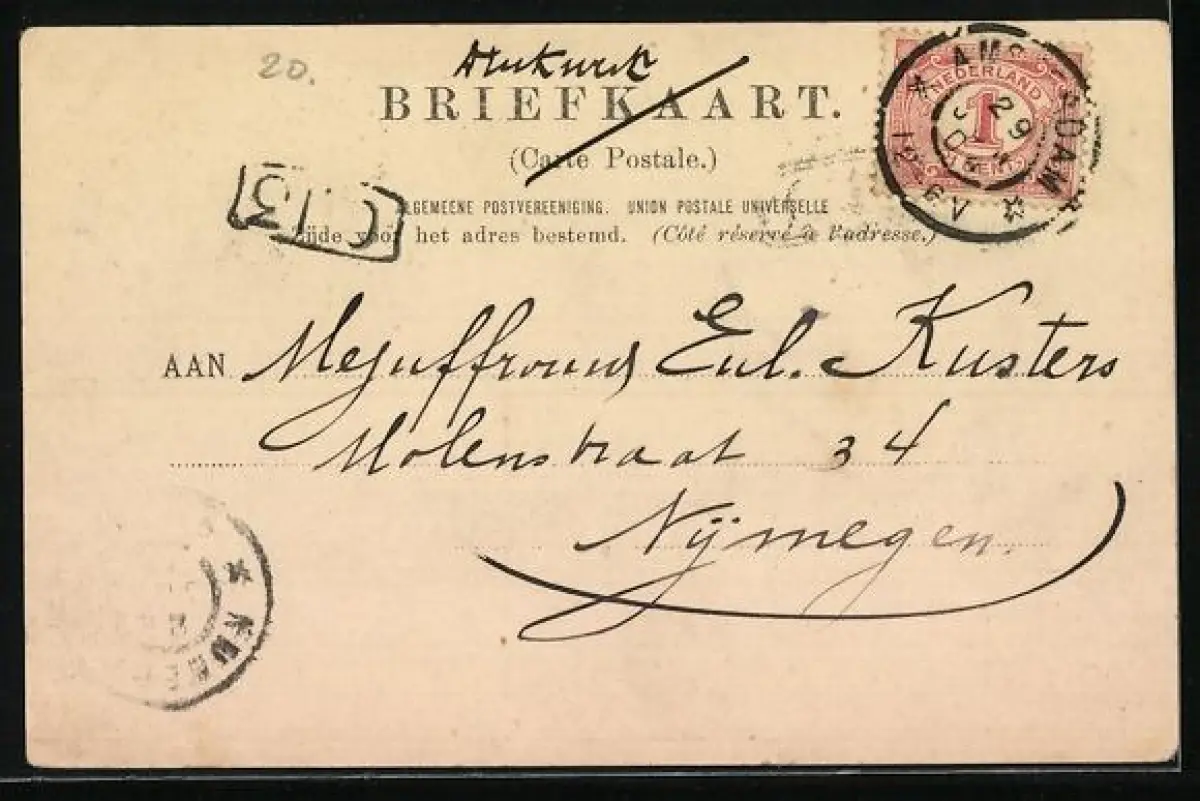 20.
Drukwerk
BRIEFKAART.
(Carte Postale.)
ALGEMEENE POSTVEREENIGING. UNION POSTALE UNIVERSELLE
Zijde voor het adres bestemd. (Côté réservé à l'adresse.)
NEDERLAND
1
CENT
AMS RDAM
29
12-6V
AAN Mejuffrouw Eul. Kusters
Molenstraat 34
Nijmegen.